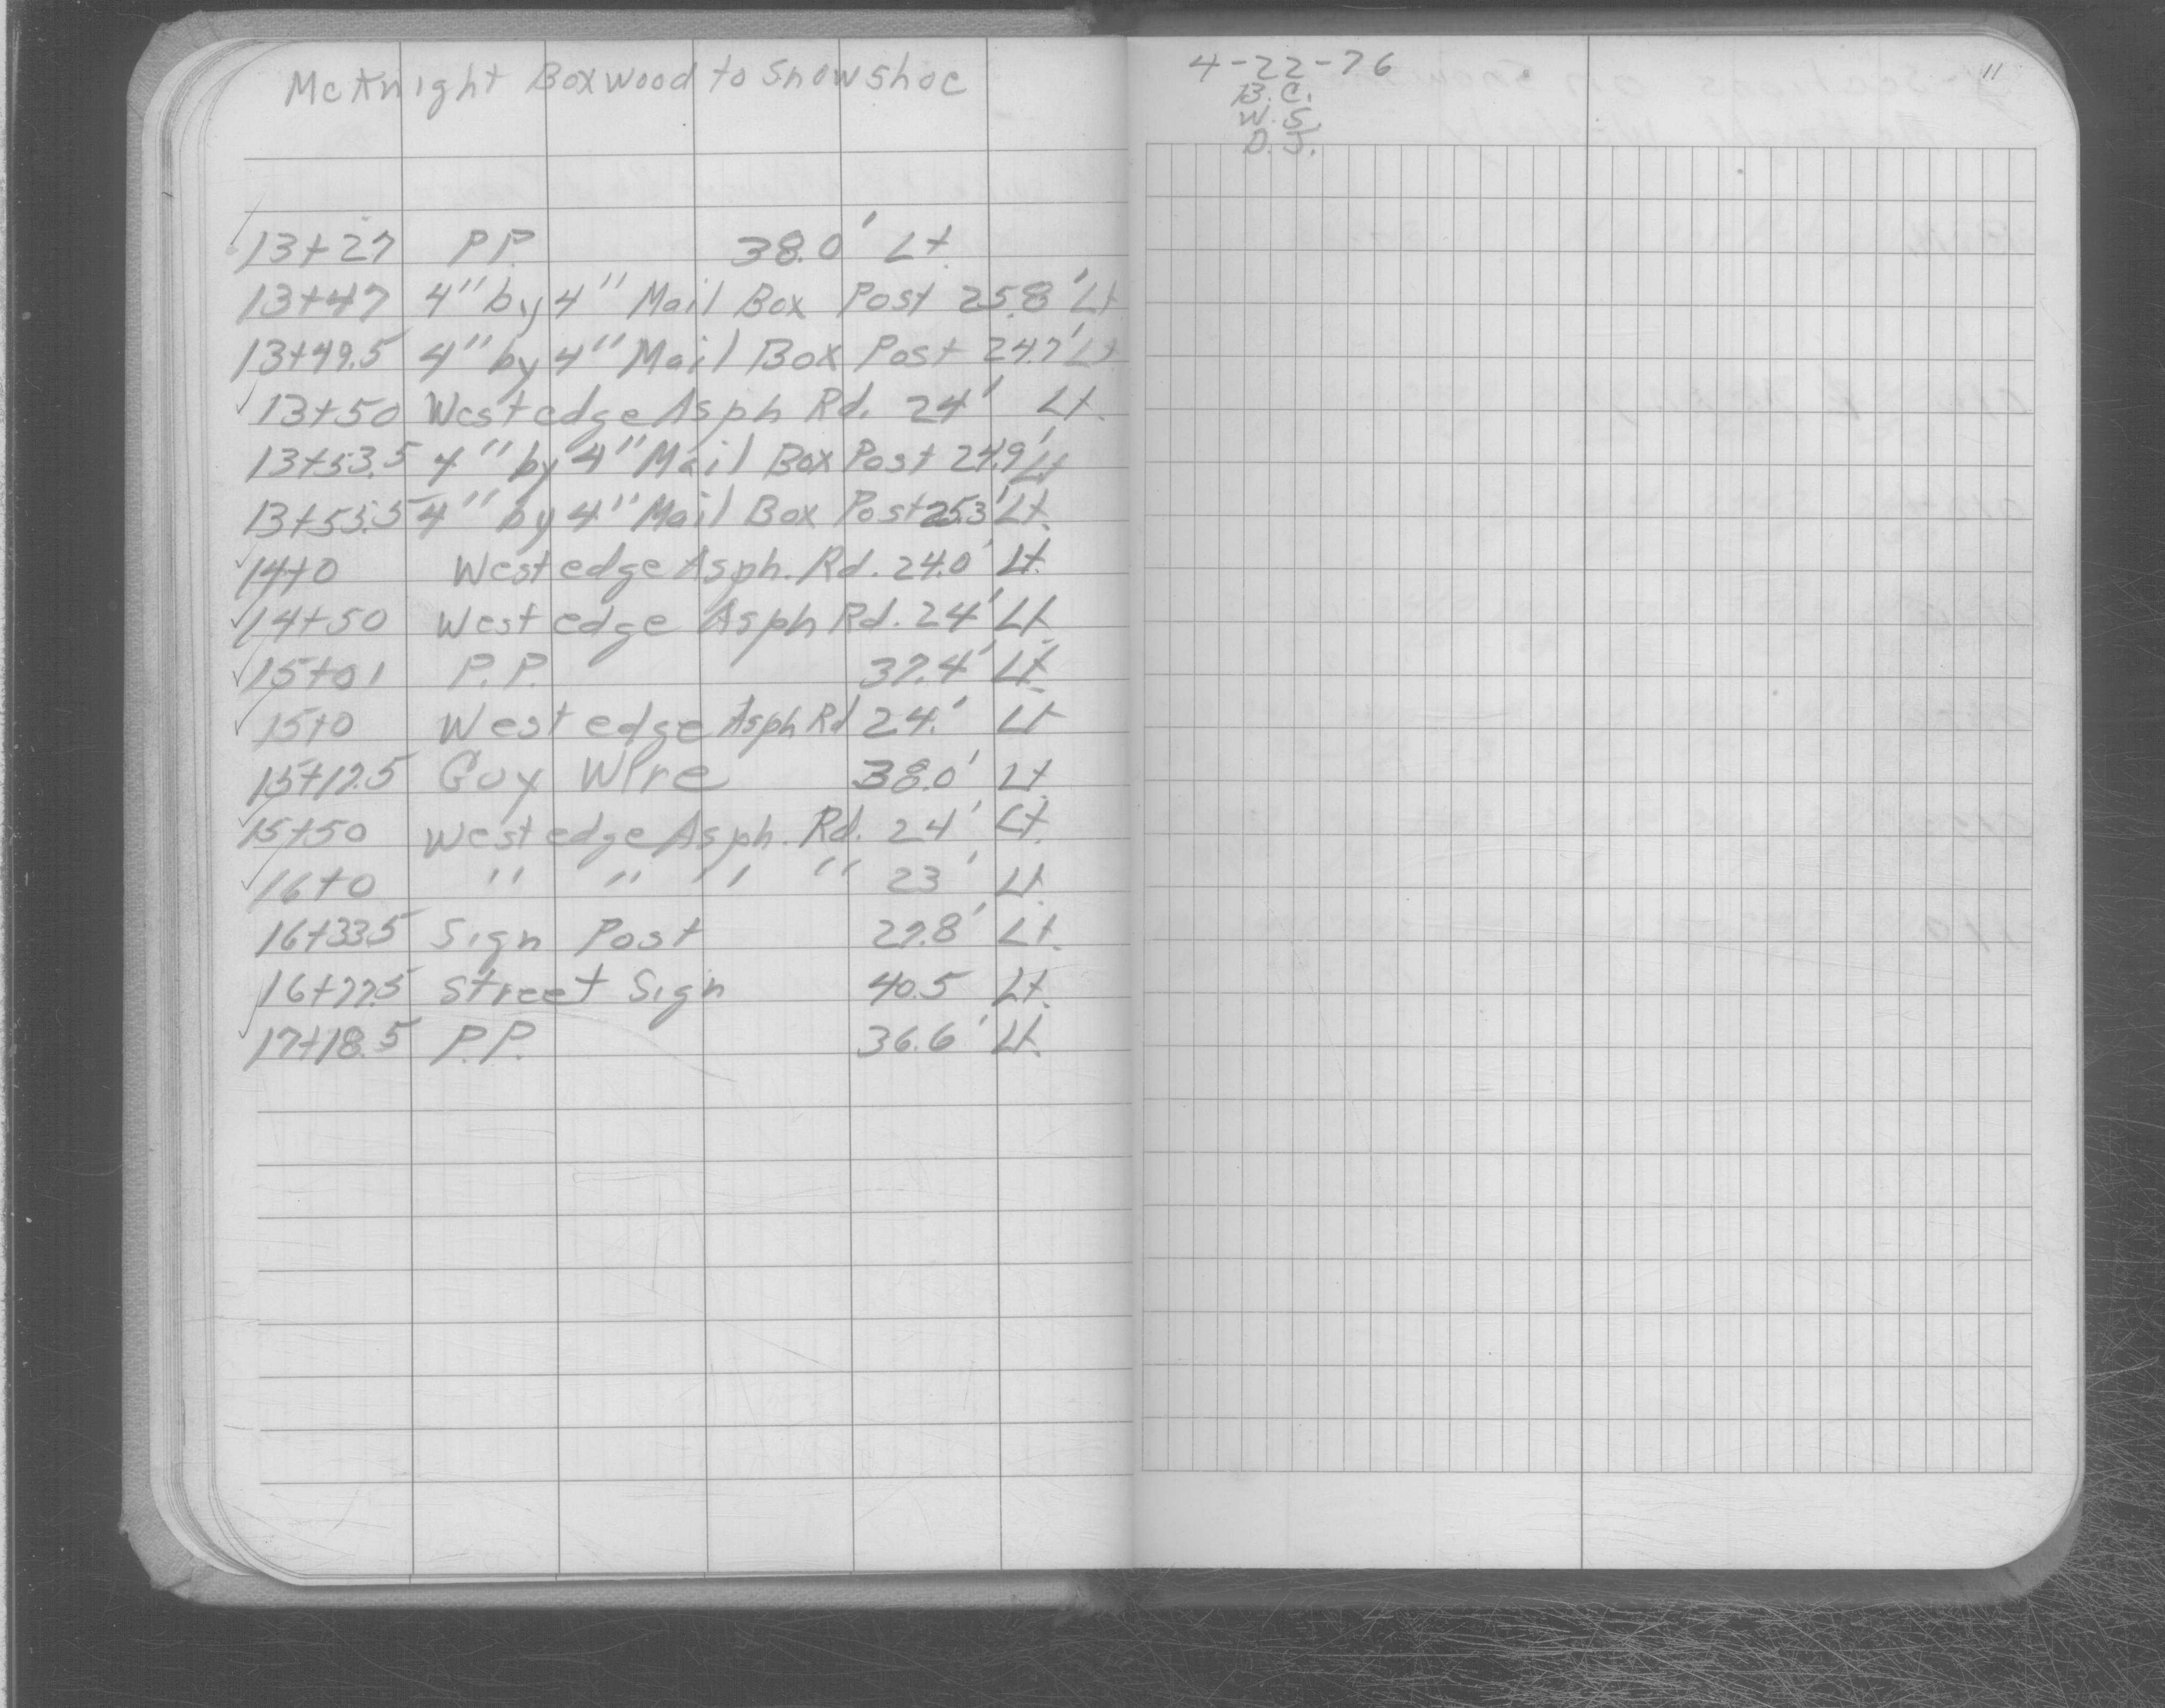 McKnight Boxwood to Snowshoe
13+27 P.P. 38.0' Lt.
13+47 4" by 4" Mail Box Post 25.8' Lt
13+49.5 4" by 4" Mail Box Post 24.7' Lt
13+50 West edge Asph Rd. 24' Lt.
13+53.5 4" by 4" Mail Box Post 24.9' Lt
13+53.5 4" by 4" Mail Box Post 25.3' Lt.
14+0 West edge Asph. Rd. 24.0' Lt.
14+50 West edge Asph Rd. 24' Lt.
15+01 P.P. 37.4' Lt.
15+0 West edge Asph Rd 24.' Lt
15+17.5 Guy Wire 38.0' Lt.
15+50 West edge Asph. Rd. 24' Lt.
16+0 " " " " 23' Lt.
16+33.5 Sign Post 27.8' Lt.
16+77.5 Street Sign 40.5 Lt.
17+18.5 P.P. 36.6' Lt.
4-22-76
B.C.
W.S.
D.J.
11